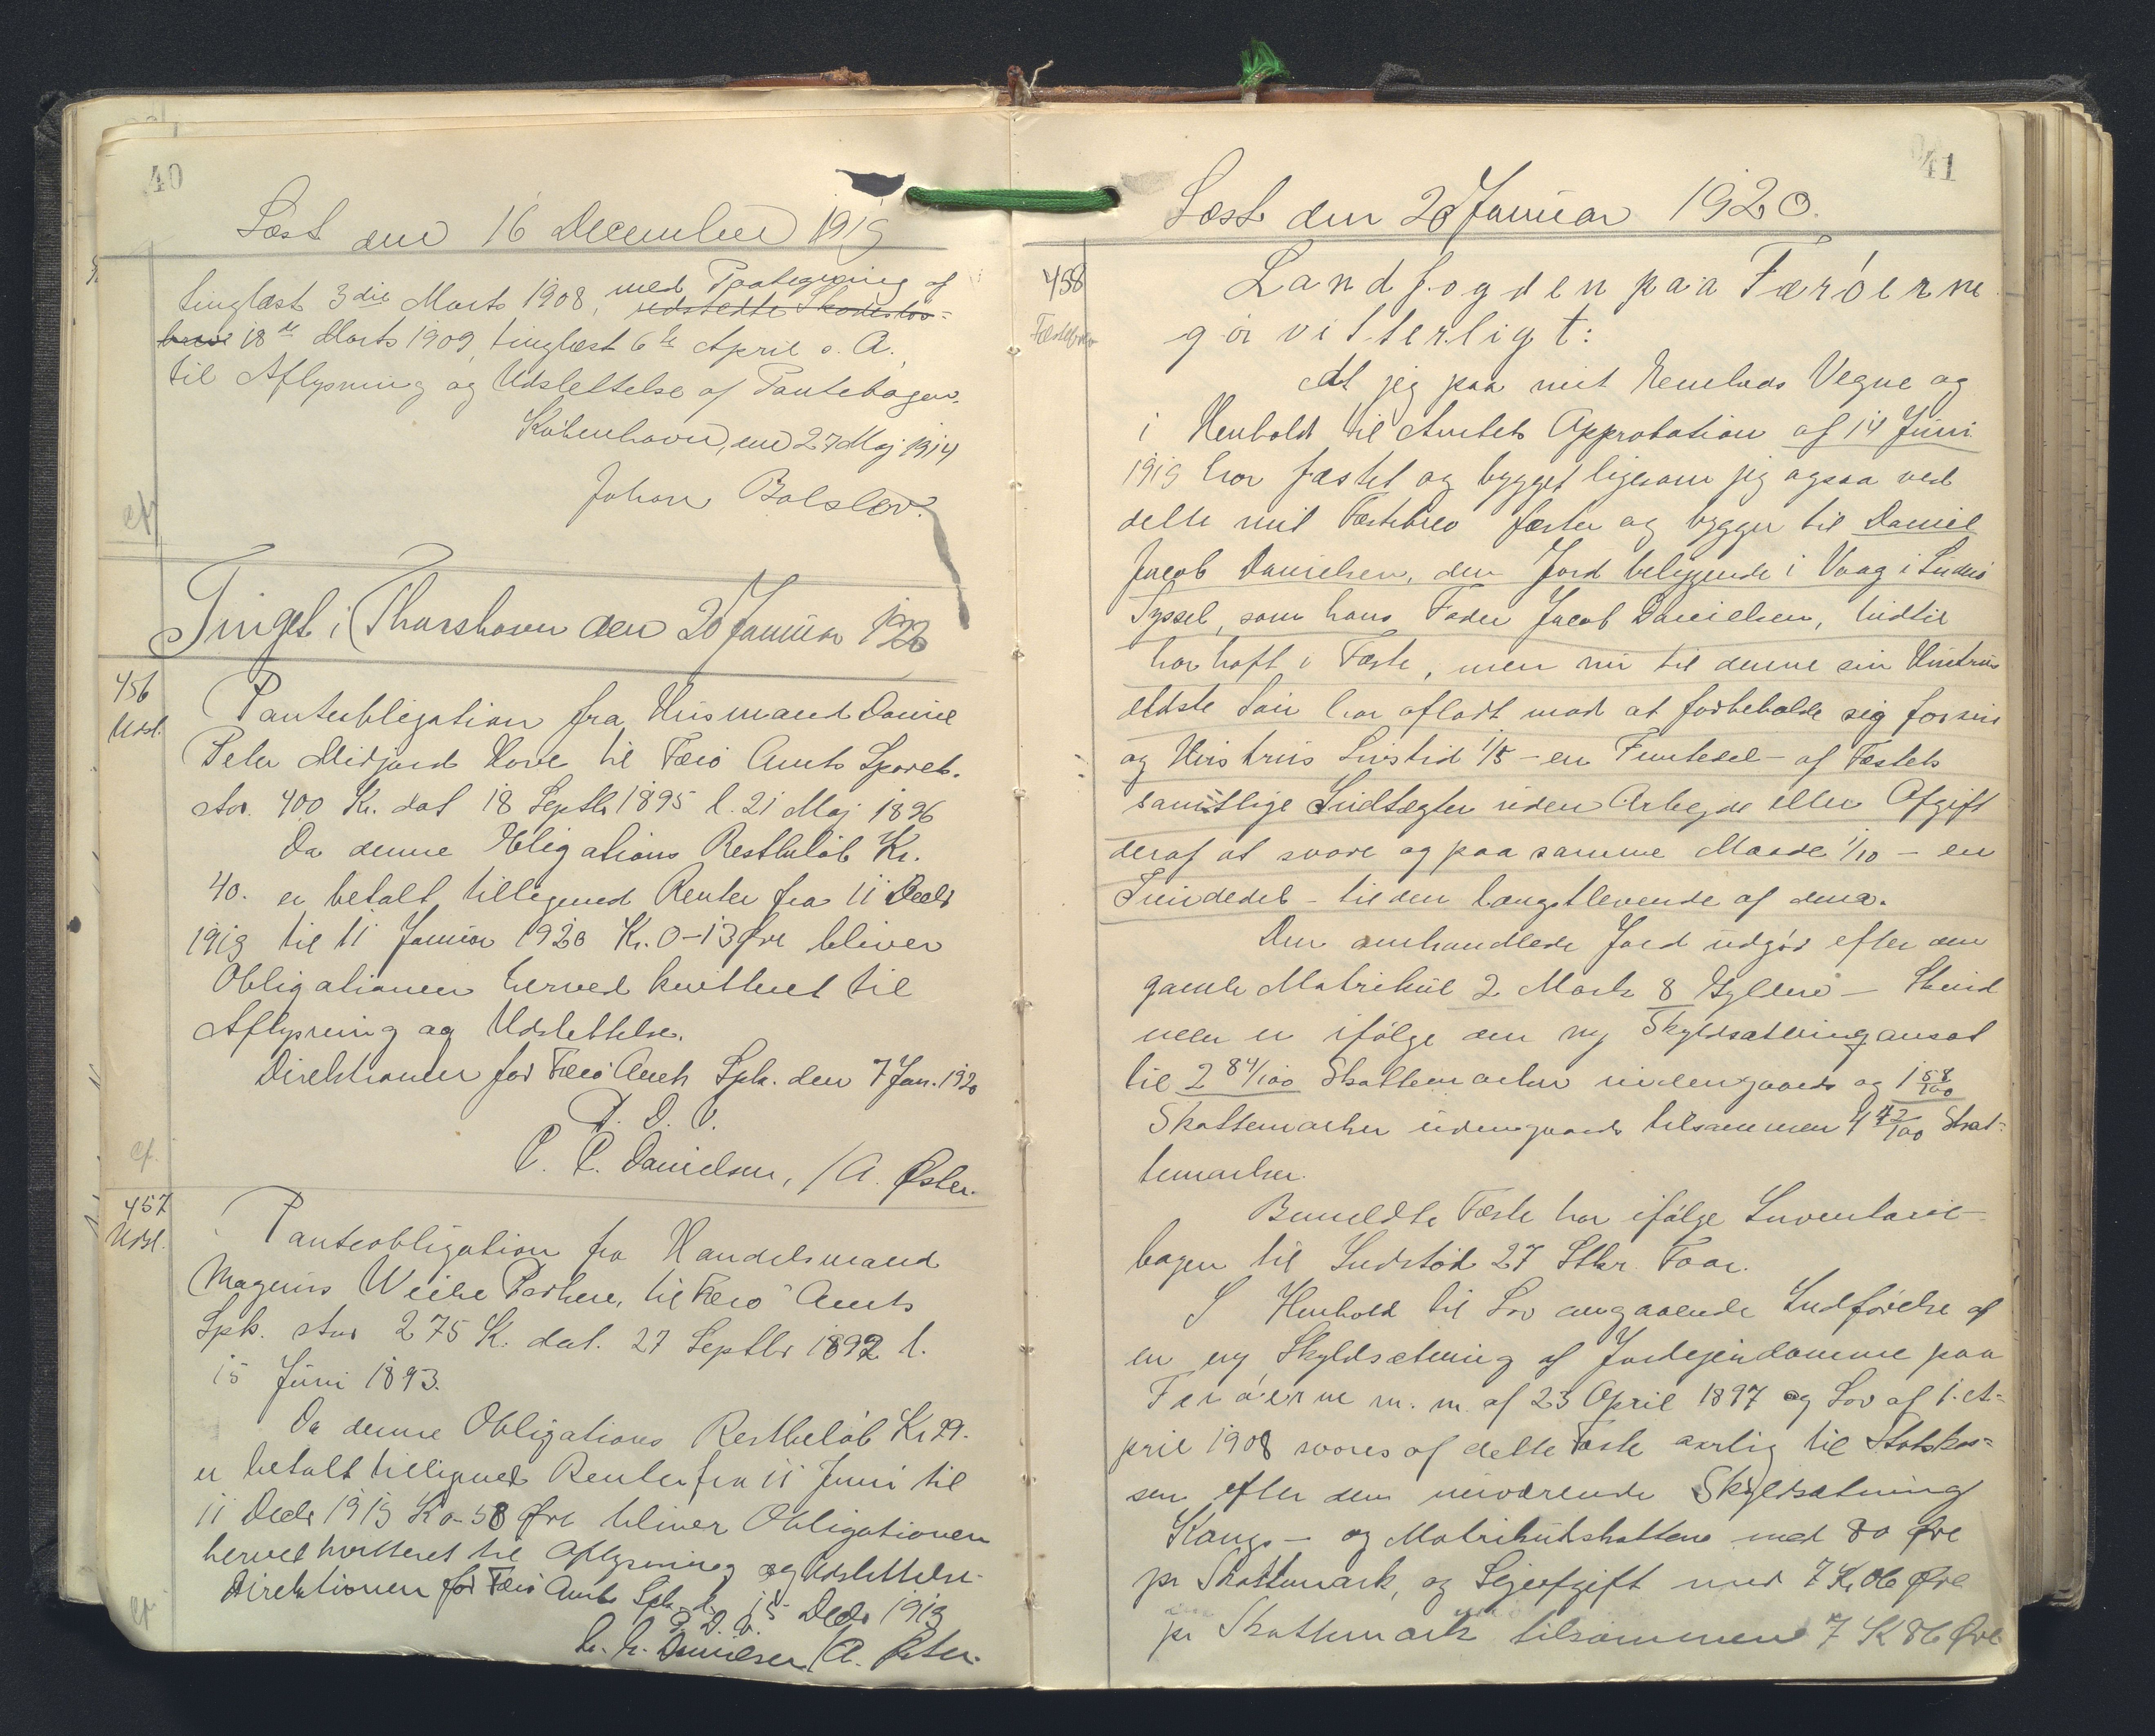 40
Læst den 16 December 1919
tinglæst 3die Marts 1908, med Paategning af
udstedte Skadesløs=
breve 18de Marts 1909, tinglæst 6te April s. A.
til Aflysning og Udslettelse af Pantebogen.
København, den 27 Maj 1914
Johan Bolslev.
cf
Tinget i Thorshavn den 20 Januar 1920
456
Udsl.
Panteobligation fra Husmand Daniel
Peter Midjord Hove til Færø Amts Sparek.
stor. 400 Kr. dat 18 Septbr 1895 l. 21 Maj 1896
Da denne Obligations Restbeløb Kr.
40. er betalt tilligemed Renter fra 11 Decbr
1919 til 11 Januar 1920 Kr. 0-13 Øre bliver
Obligationen herved kvitteret til
Aflysning og Udslettelse.
Direktionen for Færø Amts Spk. den 7 Jan. 1920
P. D. V.
C. C. Danielsen, /A. Øster.
cf.
457
Udsl.
Panteobligation fra Handelsmand
Magnus Weihe Porkere, til Færø Amts
Spk. stor 275 K. dat. 27 Septbr 1892 l.
15 Juni 1893.
Da denne Obligations Restbeløb Kr 29.
er betalt tilligemed Renter fra 11 Juni til
11 Decbr 1919 K 0-58 Øre bliver Obligationen
herved kvitteret til Aflysning og Udslettelse.
Direktionen for Færø Amts Spk. d. 15 Decbr 1919
P. D. V.
C. C. Danielsen /A. Øster.
cf.
41
Læst den 20 Januar 1920.
458
Fæstebrev
Landfogden paa Færöerne
gör vitterligt:
At jeg paa mit Embeds Vegne og
i Henhold til Amtets Approbation af 14 Juni
1919 har fæstet og bygget ligesom jeg ogsaa ved
dette mit Fæstebrev fæster og bygger til Daniel
Jacob Danielsen, den Jord beliggende i Vaag i Suderø
Syssel, som hans Fader Jacob Danielsen, hidtil
har haft i Fæste, men nu til denne sin Hustrus
ældste Søn har afladt mod at forbeholde sig for sin
og Hustrus Livstid 1/5 - en Femtedel - af Fæstets
samtlige Indtægter uden Arbejde eller Afgift
deraf at svare og paa samme Maade 1/10 - en
Tiendedel - til den længstlevende af dem.
Den omhandlede Jord udgør efter den
gamle Matrikul 2 Mark 8 Gylden - Skind
men er ifølge den ny Skyldsætning ansat
til 2 84/100 Skattemarker indengaards og 1 58/100
Skattemarker udengaards tilsammen 4 42/100 Skat=
temarker.
Bemeldte Fæste har ifølge Inventarie-
bogen til Indstød 27 Stkr. Faar.
I Henhold til Lov angaaende Indførelse af
en ny Skyldsætning af Jordejendomme paa
Færøerne m. m. af 23 April 1897 og Lov af 1. A=
pril 1908 svares af dette Fæste aarlig til Statskas=
sen efter den nuværende Skyldsætning
Konge- og Matrikulskattene med 80 Øre
pr Skattemark, og Lejeafgift med 7 K. 06 Øre
pr Skattemark tilsammen 7 K 86 Øre